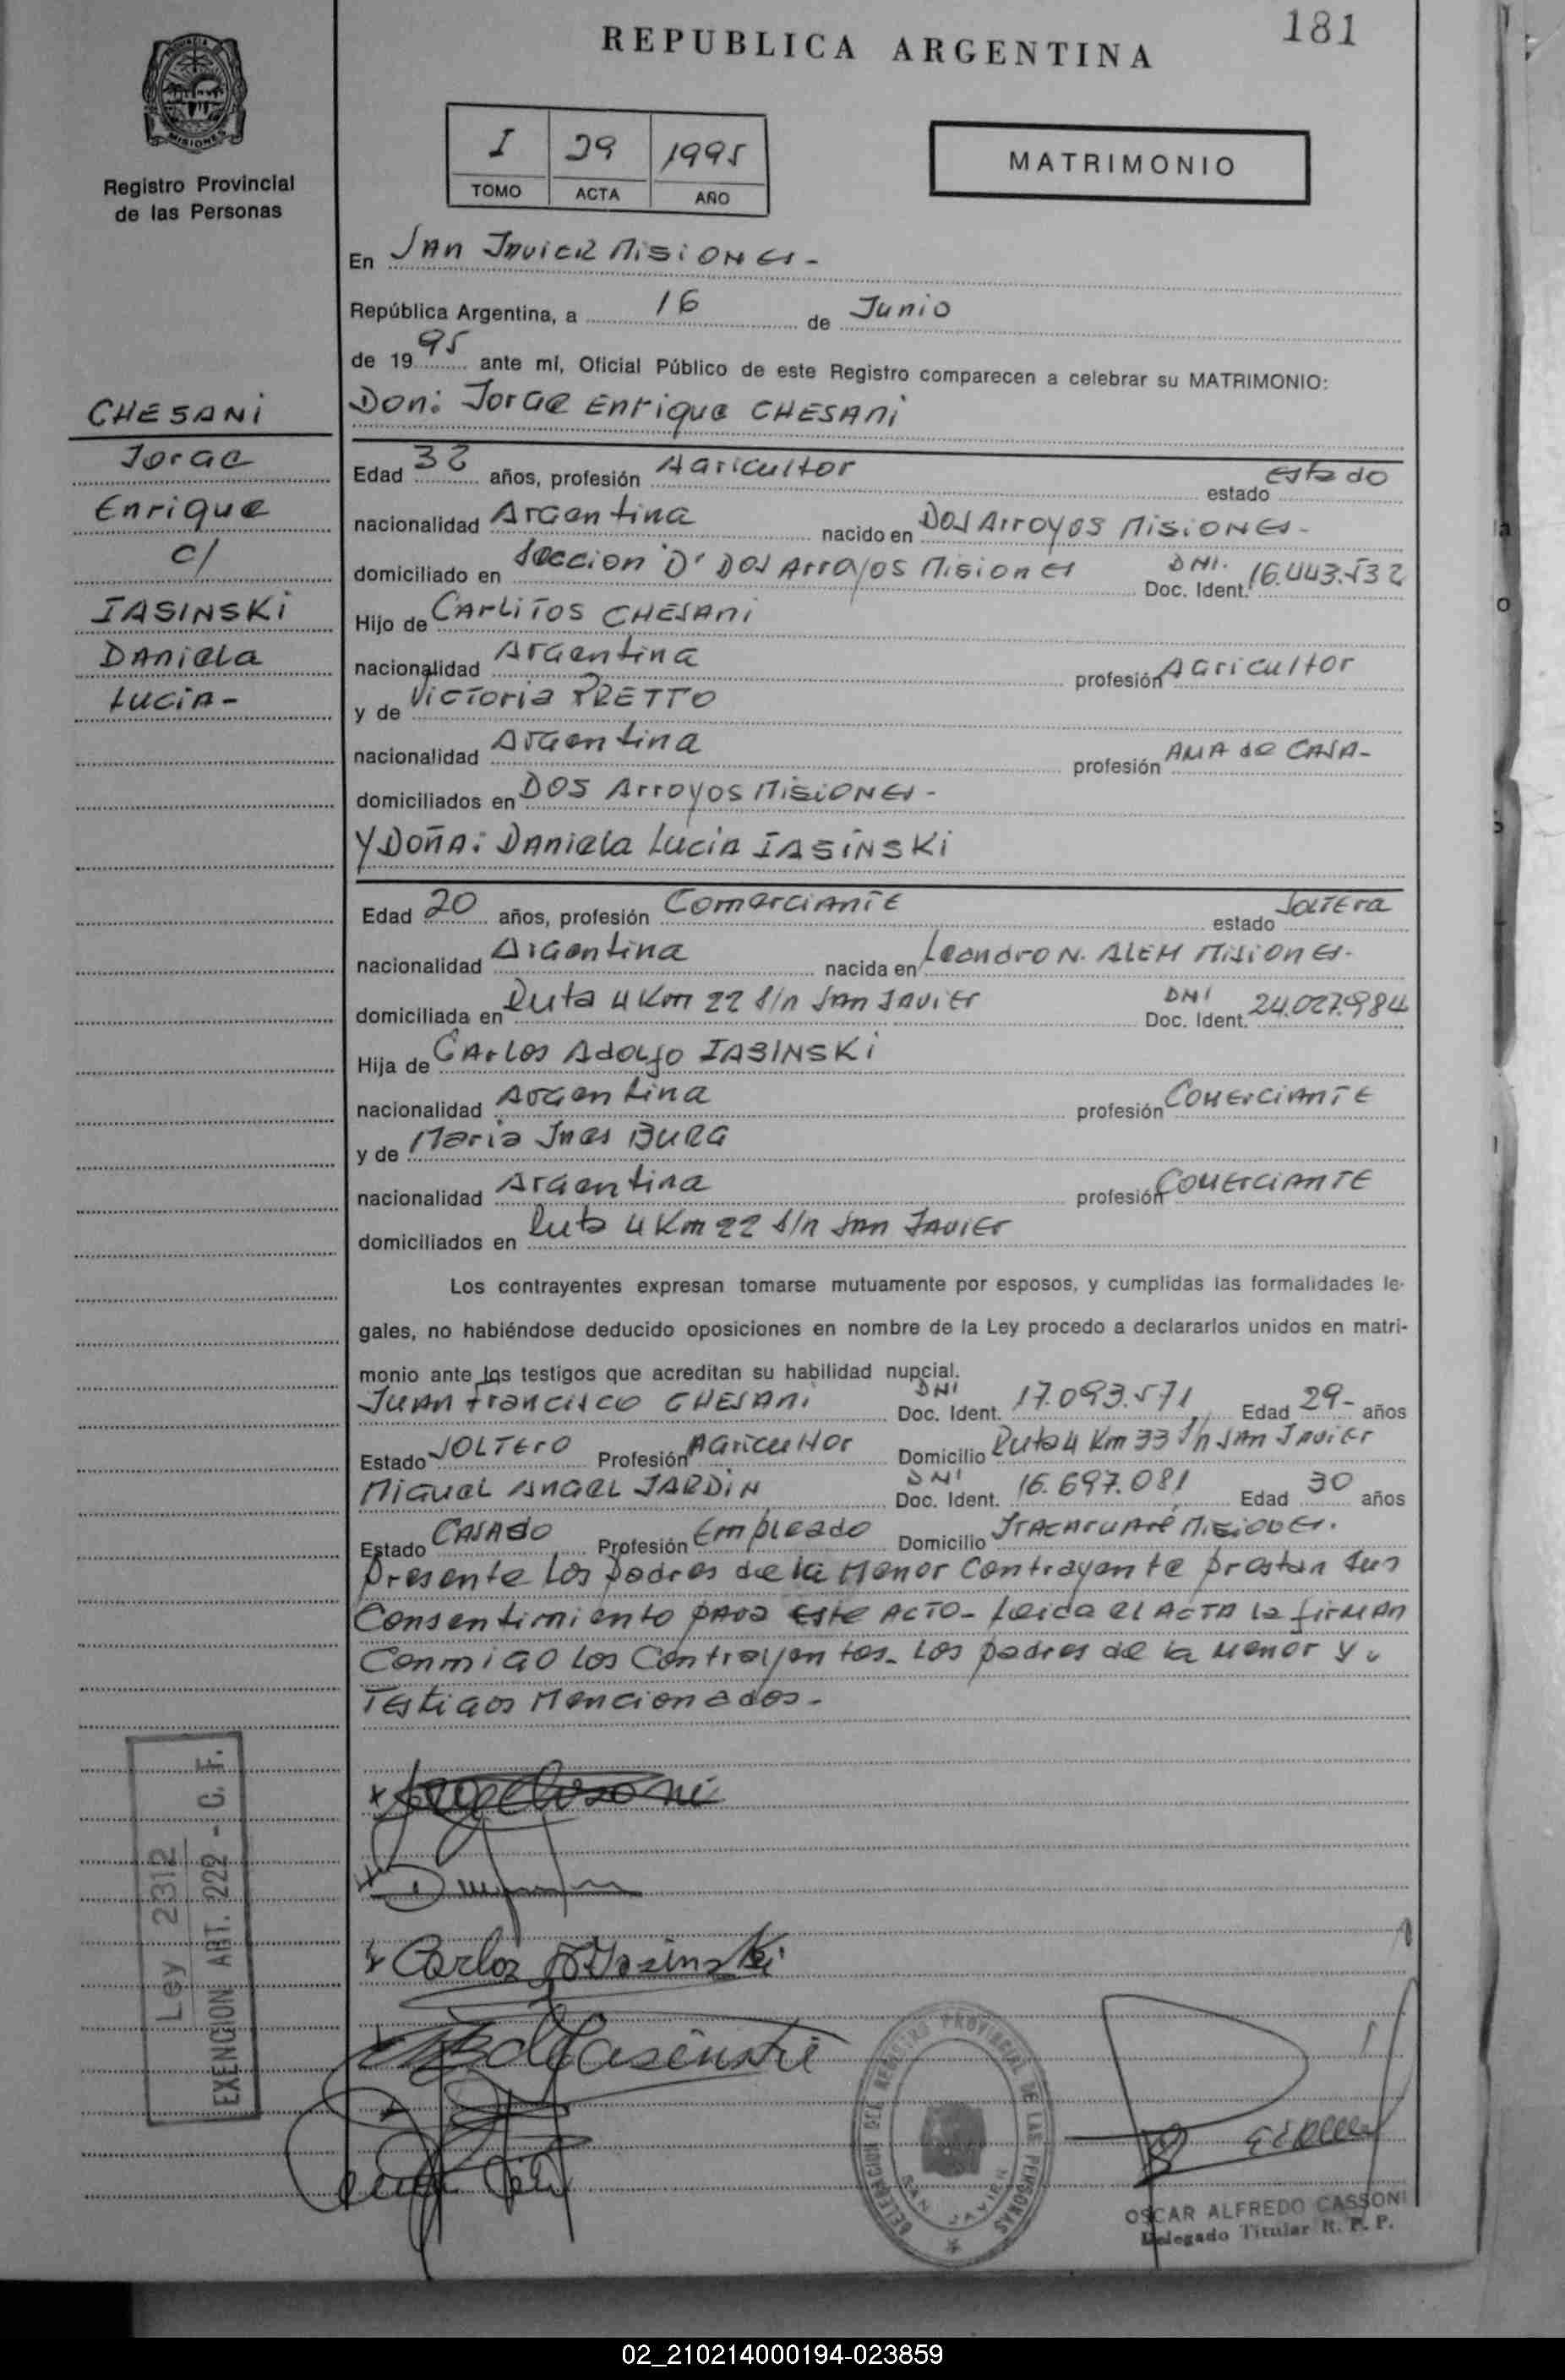 181
REPUBLICA ARGENTINA
MISIONES
Registro Provincial
de las Personas
I 29 1995
TOMO ACTA AÑO
MATRIMONIO
En SAn JAvieR MiSiONes-
República Argentina, a 16 de Junio
de 1995 ante mí, Oficial Público de este Registro comparecen a celebrar su MATRIMONIO:
CHESANi
Jorge
Enrique
c/
IASINSKi
DAniela
Lucia-
Don: Jorge Enrique CHESAni
Edad 32 años, profesión Agricultor estado estado
nacionalidad Argentina nacido en Dos Arroyos MiSiONes-
domiciliado en Seccion "D" Dos Arroyos Misiones DNI. Doc. Ident. 16.443.532
Hijo de CArliTos CHESAni
nacionalidad Argentina profesión Agricultor
y de Victoria PRETTO
nacionalidad Argentina profesión AMA de CASA-
domiciliados en DOS Arroyos MiSiONes-
Y DOñA: DAniela Lucia IASiNSKi
Edad 20 años, profesión ComerciAnTE estado SolTEra
nacionalidad Argentina nacida en Leandro N. ALEM Misiones-
domiciliada en Ruta 4 Km 22 s/n San Javier DNI Doc. Ident. 24.027.984
Hija de CArLos Adolfo IASINSKi
nacionalidad Argentina profesión ComerciAnTE
y de Maria Ines BURG
nacionalidad Argentina profesión ComerciAnTE
domiciliados en Ruta 4 Km 22 s/n San Javier
Los contrayentes expresan tomarse mutuamente por esposos, y cumplidas las formalidades le-
gales, no habiéndose deducido oposiciones en nombre de la Ley procedo a declararlos unidos en matri-
monio ante los testigos que acreditan su habilidad nupcial.
Juan Francisco CHESAni DNI Doc. Ident. 17.093.571 Edad 29- años
Estado SOLTEro Profesión Agricultor Domicilio Ruta 4 Km 33 s/n San Javier
Miguel Angel JARDiN DNI Doc. Ident. 16.697.081 Edad 30 años
Estado CASAdo Profesión Empleado Domicilio ITACARUARé Misiones.
Presente los padres de la Menor Contrayente prestan sus
Consentimiento para este ACTO- Leida el ACTA la firman
Conmigo los Contrayentes- Los padres de la menor y
Testigos Mencionados-
Ley 2312
EXENCION ART. 222 - C. F.
Carlos A Iasinski
DELEGACION DEL REGISTRO PROVINCIAL DE LAS PERSONAS
SAN JAVIER
OSCAR ALFREDO CASSONI
Delegado Titular R. P. P.
02_210214000194-023859